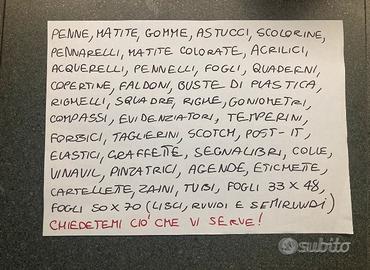 PENNE, MATITE, GOMME, ASTUCCI, SCOLORINE,
PENNARELLI, MATITE COLORATE, ACRILICI,
ACQUERELLI, PENNELLI, FOGLI, QUADERNI,
COPERTINE, FALDONI, BUSTE DI PLASTICA,
RIGHELLI, SQUADRE, RIGHE, GONIOMETRI,
COMPASSI, EVIDENZIATORI, TEMPERINI,
FORBICI, TAGLIERINI, SCOTCH, POST-IT,
ELASTICI, GRAFFETTE, SEGNALIBRI, COLLE,
VINAVIL, PINZATRICI, AGENDE, ETICHETTE,
CARTELLETTE, ZAINI, TUBI, FOGLI 33 x 48,
FOGLI 50 x 70 (LISCI, RUVIDI E SEMIRUVIDI)
CHIEDETEMI CIÒ CHE VI SERVE!
subito